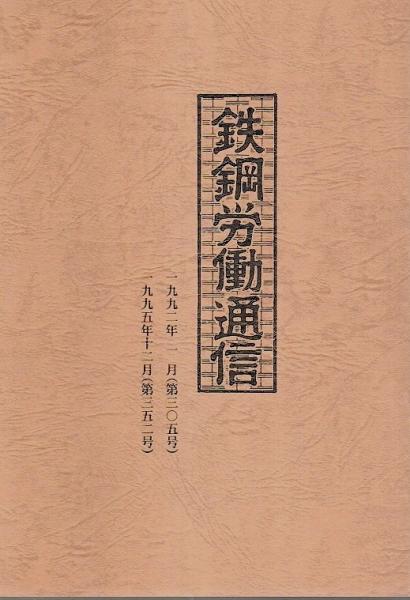 鉄鋼労働通信
一九九二年　一月(第三〇五号)
一九九五年十二月(第三五二号)